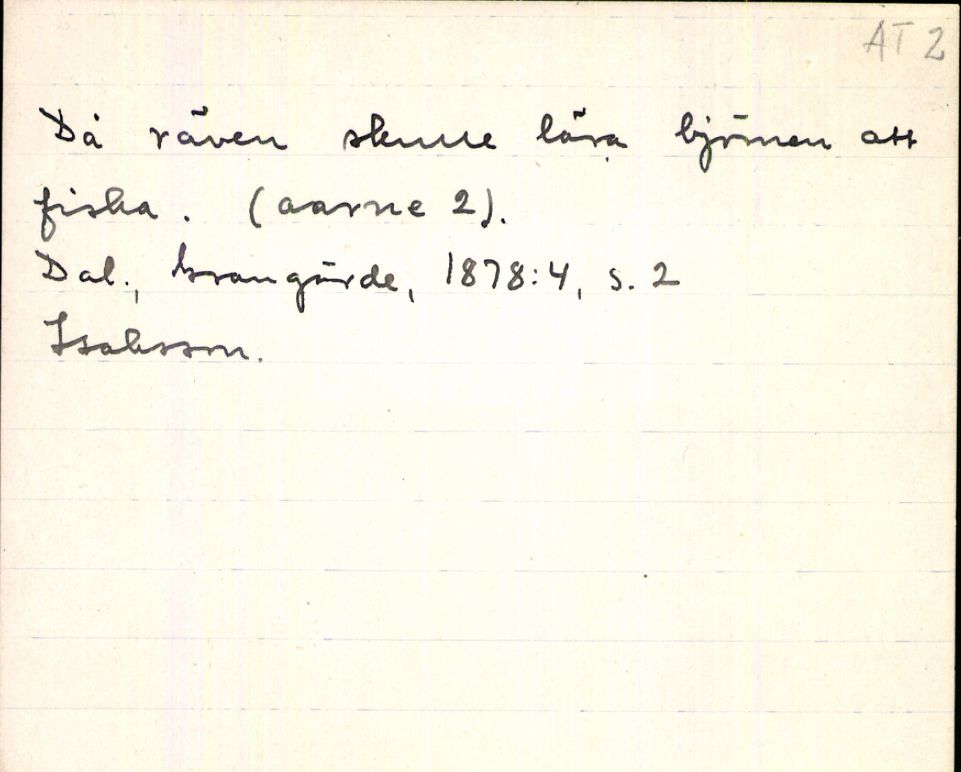 AT 2
Då räven skulle lära björnen att
fiska. (Aarne 2).
Dal., Grangärde, 1878:4, s. 2
Isaksson.